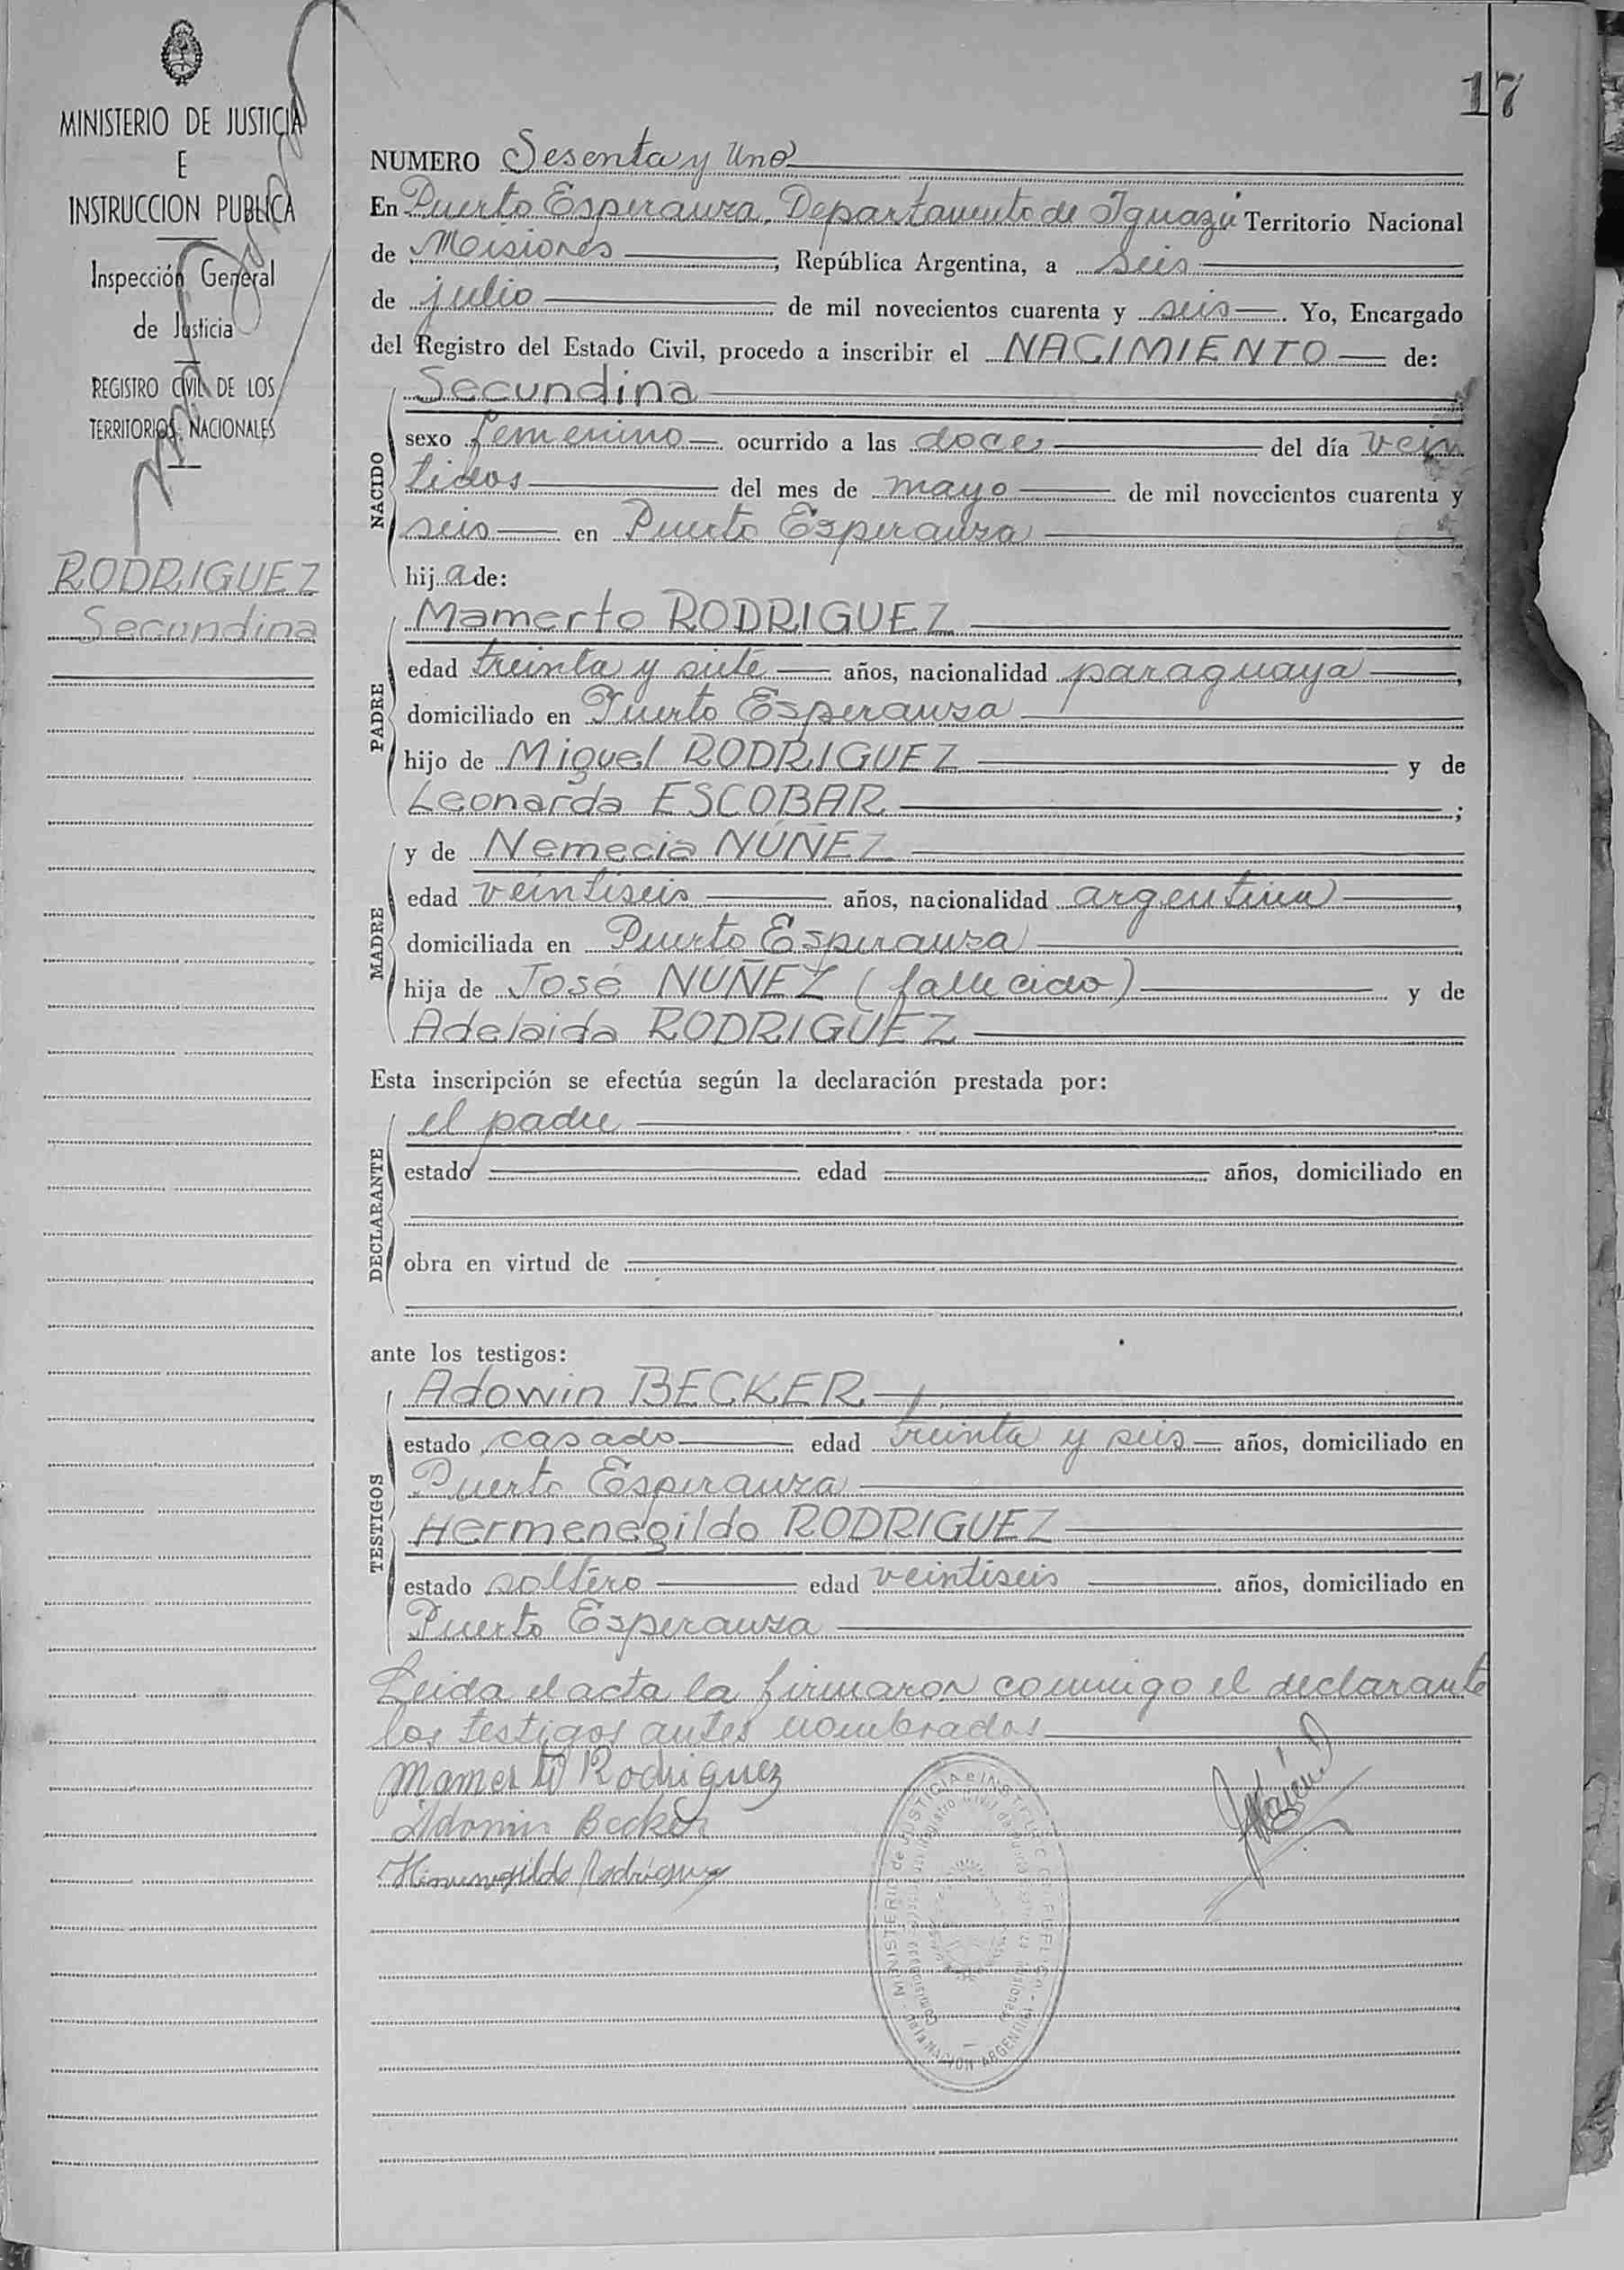 17
MINISTERIO DE JUSTICIA
E
INSTRUCCION PUBLICA
Inspección General
de Justicia
REGISTRO CIVIL DE LOS
TERRITORIOS NACIONALES
RODRIGUEZ
Secundina
NUMERO Sesenta y Uno
En Puerto Esperanza, Departamento de Iguazú Territorio Nacional
de Misiones, República Argentina, a seis
de julio de mil novecientos cuarenta y seis. Yo, Encargado
del Registro del Estado Civil, procedo a inscribir el NACIMIENTO de:
NACIDO
Secundina
sexo femenino ocurrido a las doce del día vein
tidos del mes de mayo de mil novecientos cuarenta y
seis en Puerto Esperanza
hija de:
PADRE
Mamerto RODRIGUEZ
edad treinta y siete años, nacionalidad paraguaya,
domiciliado en Puerto Esperanza
hijo de Miguel RODRIGUEZ y de
Leonarda ESCOBAR;
MADRE
y de Nemecia NÚÑEZ
edad veintiseis años, nacionalidad argentina,
domiciliada en Puerto Esperanza
hija de José NÚÑEZ (fallecido) y de
Adelaida RODRIGUEZ
Esta inscripción se efectúa según la declaración prestada por:
DECLARANTE
el padre
estado edad años, domiciliado en
obra en virtud de
ante los testigos:
TESTIGOS
Adowin BECKER
estado casado edad treinta y seis años, domiciliado en
Puerto Esperanza
Hermenegildo RODRIGUEZ
estado soltero edad veintiseis años, domiciliado en
Puerto Esperanza
Leida el acta la firmaron conmigo el declarante
los testigos antes nombrados
Mamerto Rodriguez
Adowin Becker
Hermenegildo Rodriguez
MINISTERIO de JUSTICIA e INSTRUCC
NACION ARGENTINA